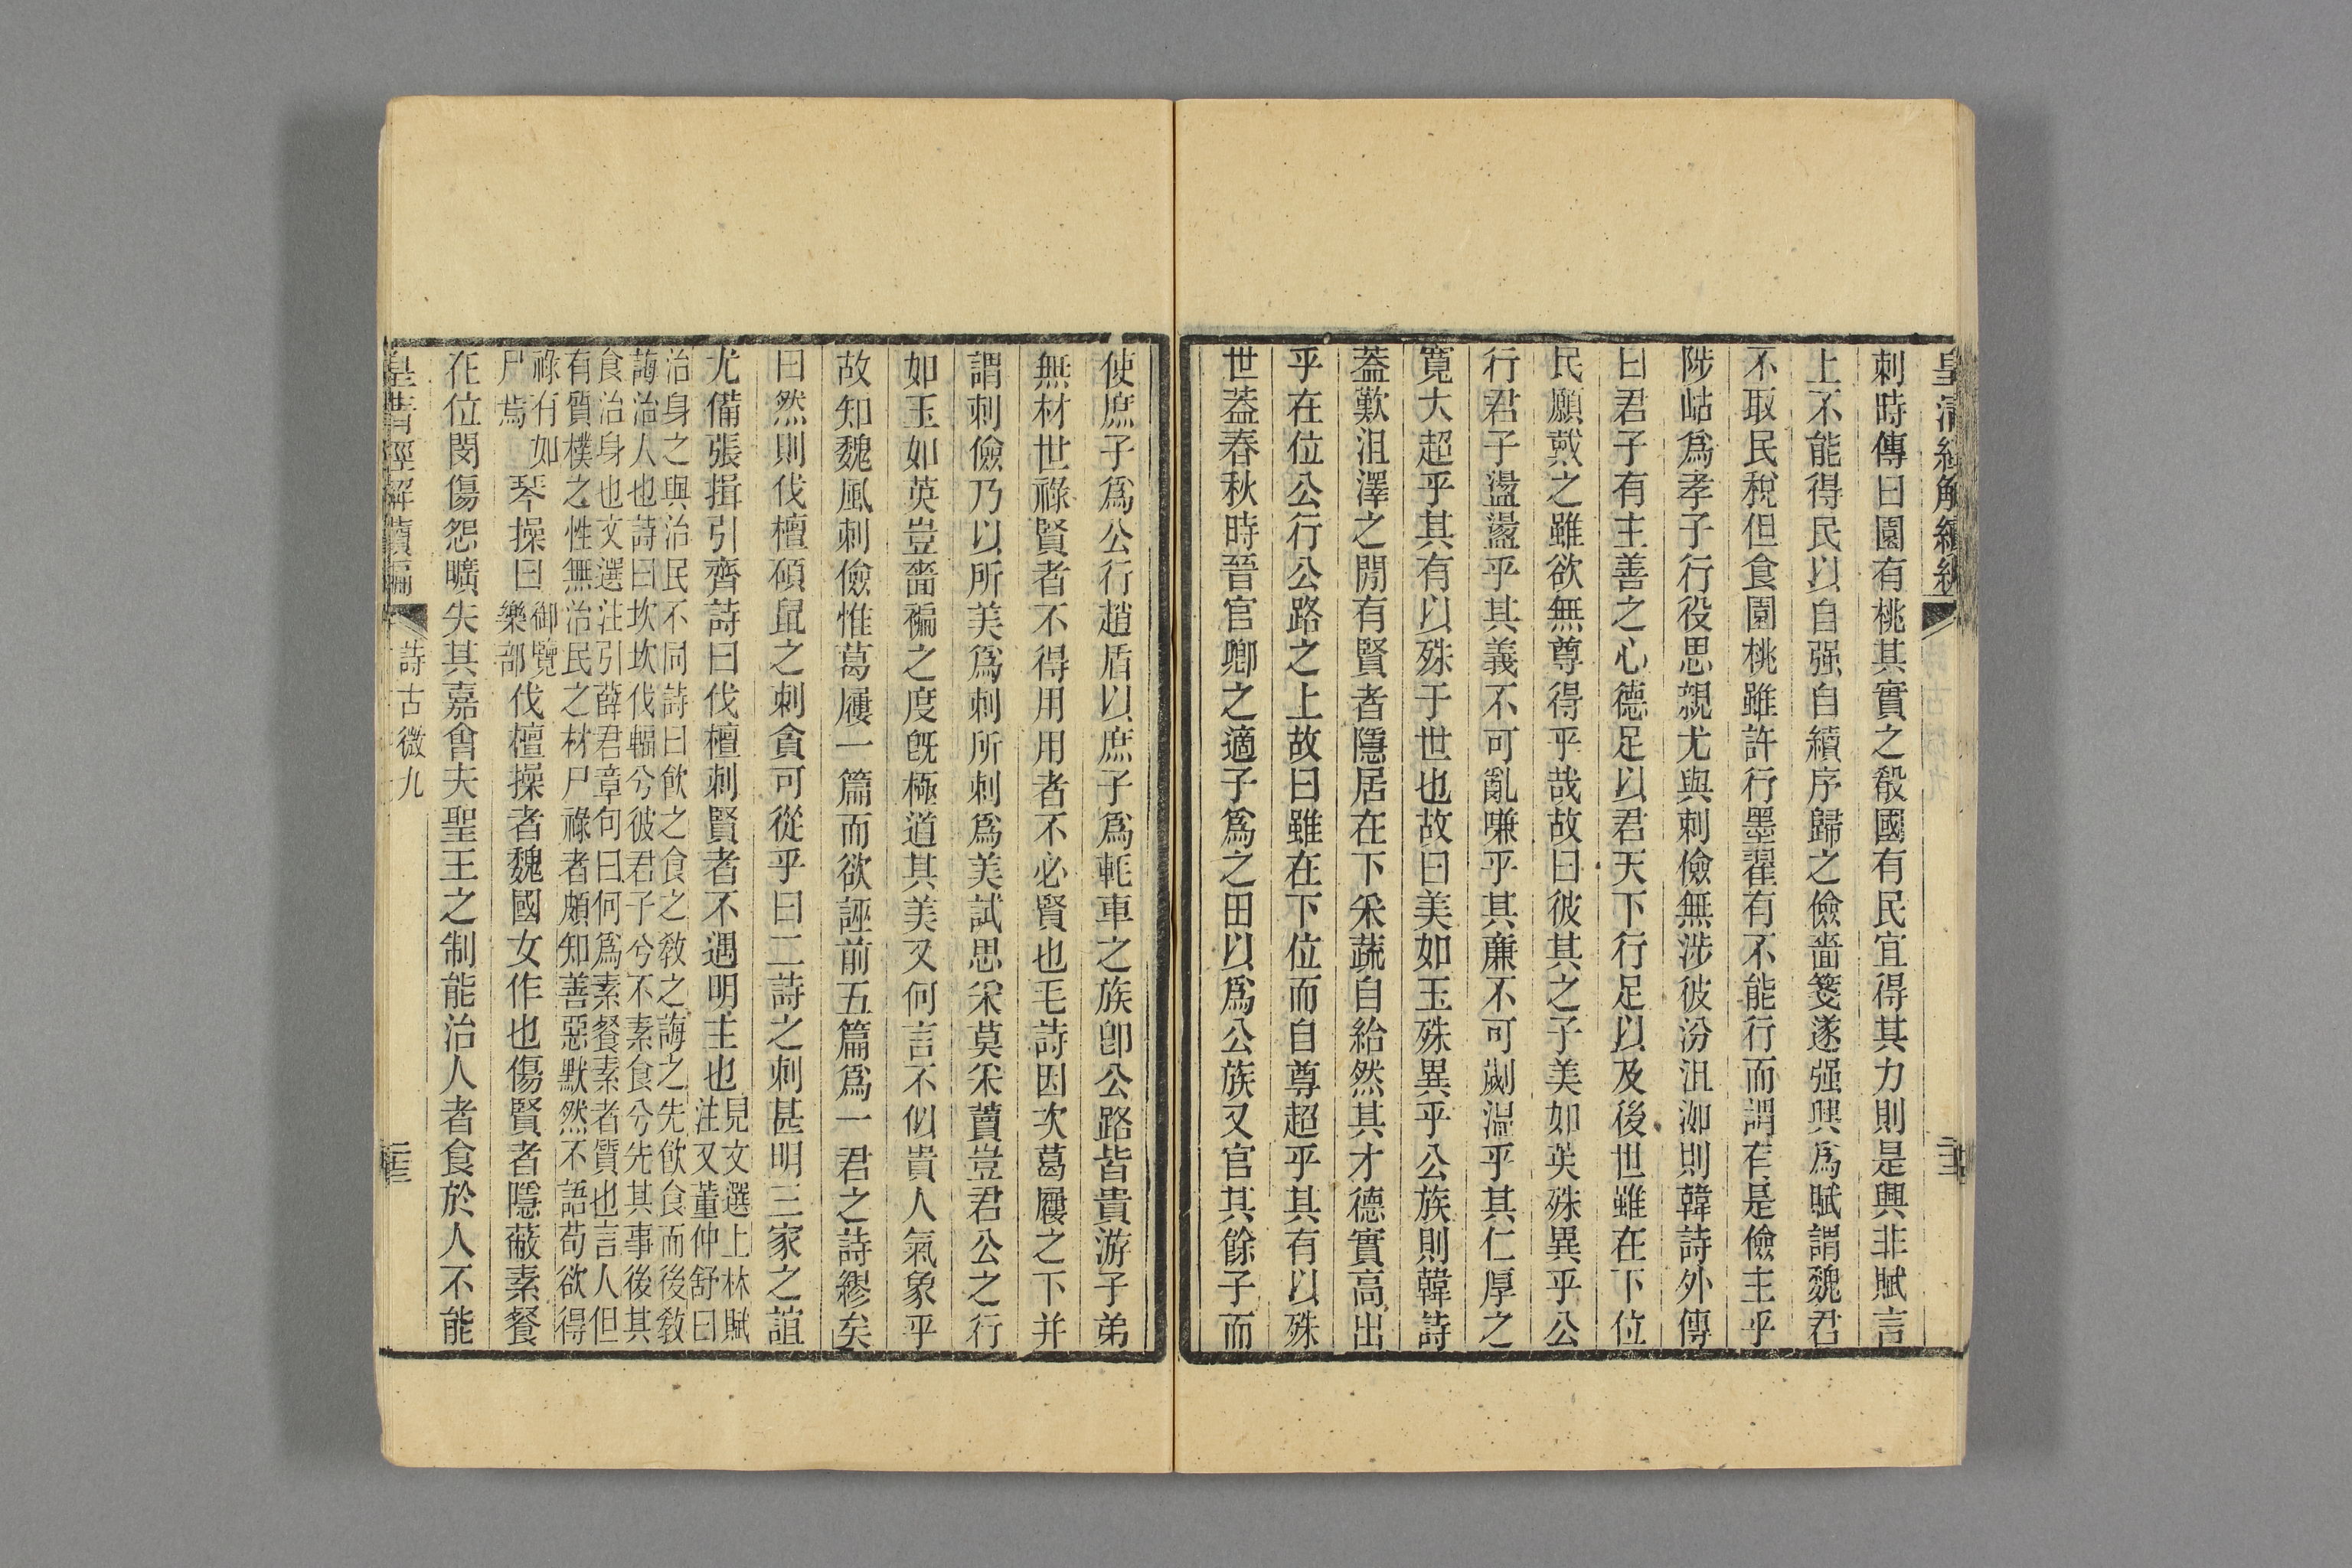 皇清經解續編
刺時傳曰園有桃其實之殽國有民宜得其力則是興非賦言
上不能得民以自强自續序歸之儉嗇箋遂强興爲賦謂魏君
不取民稅但食園桃雖許行墨翟有不能行而謂有是儉主乎
陟岵爲孝子行役思親尤與刺儉無涉彼汾沮洳則韓詩外傳
曰君子有主善之心德足以君天下行足以及後世雖在下位
民願戴之雖欲無尊得乎哉故曰彼其之子美如英殊異乎公
行君子盪盪乎其義不可亂嗛乎其廉不可劌溫乎其仁厚之
寬大超乎其有以殊于世也故曰美如玉殊異乎公族則韓詩
葢歎沮澤之閒有賢者隱居在下采蔬自給然其才德實高出
乎在位公行公路之上故曰雖在下位而自尊超乎其有以殊
世葢春秋時晉官卿之適子爲之田以爲公族又官其餘子而
使庶子爲公行趙盾以庶子爲軞車之族卽公路皆貴游子弟
無材世祿賢者不得用用者不必賢也毛詩因次葛屨之下并
謂刺儉乃以所美爲刺所刺爲美試思采莫采藚豈君公之行
如玉如英豈嗇褊之度旣極道其美又何言不似貴人氣象乎
故知魏風刺儉惟葛屨一篇而欲誣前五篇爲一君之詩繆矣
曰然則伐檀碩鼠之刺貪可從乎曰二詩之刺甚明三家之誼
尤備張揖引齊詩曰伐檀刺賢者不遇明主也
見文選上林賦
注又董仲舒曰
治身之與治民不同詩曰飮之食之敎之誨之先飮食而後敎
誨治人也詩曰坎坎伐輻兮彼君子兮不素食兮先其事後其
食治身也文選注引薛君章句曰何爲素餐素者質也言人但
有質樸之性無治民之材尸祿者頗知善惡默然不語苟欲得
祿有如
尸焉
琴操曰
御覽
樂部
伐檀操者魏國女作也傷賢者隱蔽素餐
在位閔傷怨曠失其嘉會夫聖王之制能治人者食於人不能
皇清經解續編
詩古微九